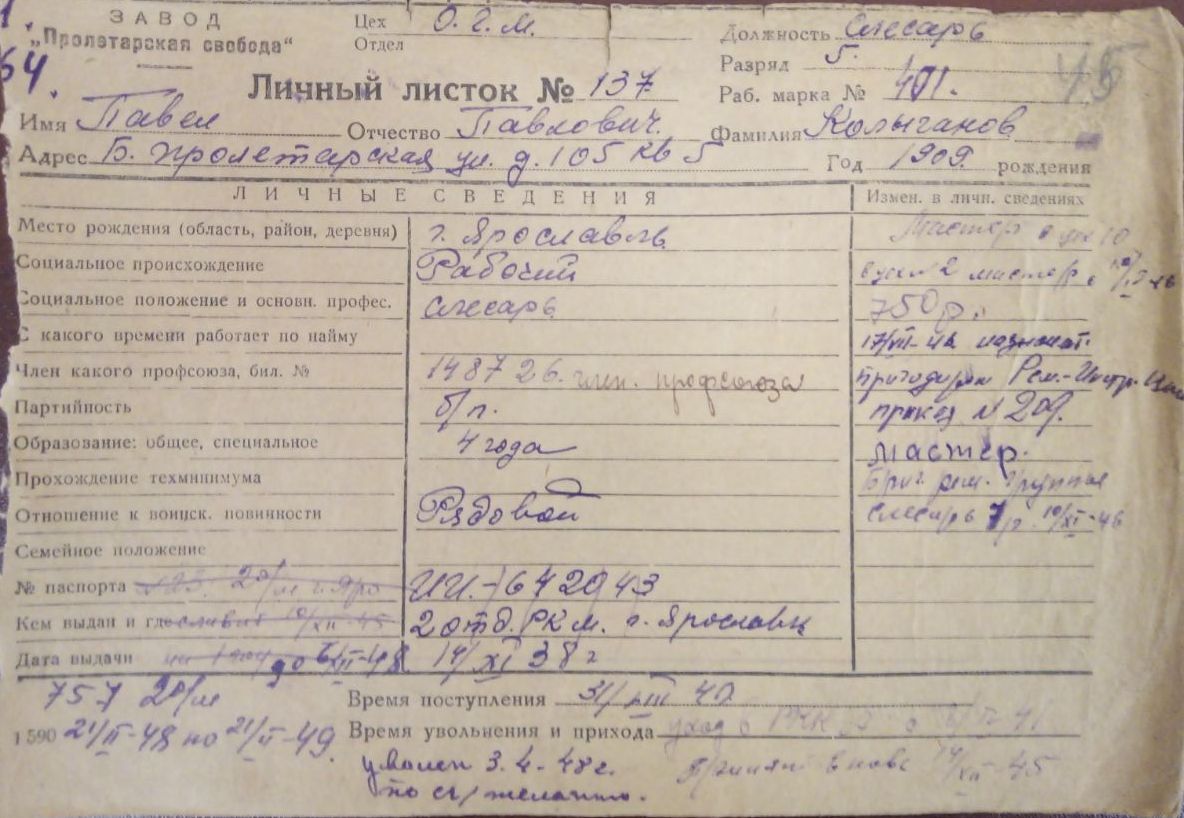 ЗАВОД
„Пролетарская свобода“
64.
Цех О.Г.М.
Отдел
Должность Слесарь
Разряд 5.
Раб. марка №
45
Личный листок № 137
Имя Павел Отчество Павлович. Фамилия Колыганов
Адрес Б. пролетарская ул. д. 105 кв 5 Год 1909. рождения
ЛИЧНЫЕ СВЕДЕНИЯ
Измен. в личн. сведениях
Место рождения (область, район, деревня) г. Ярославль
Мастер
Социальное происхождение Рабочий
мастер
Социальное положение и основн. профес. слесарь
750 р.
С какого времени работает по найму
17/VII-
Член какого профсоюза, бил. № 148726. член. профсоюза
Партийность б/п.
приказ № 209.
Образование: общее, специальное 4 года
мастер.
Прохождение техминимума
Бриг. рем. группы
Отношение к воинск. повинности Рядовой
слесарь 7 р. 10/XI-46
Семейное положение
№ паспорта ИИ-642043
Кем выдан и где 2 отд. РКМ. г. Ярославль
Дата выдачи до 6/XII-48. 14/XI 38 г
757
Время поступления 31/VIII 40
1590 21/II-48 по 21/II-49.
Время увольнения и прихода уход в РККА с
уволен 3.4-48 г. Принят вновь 14/XII-45
по с/желанию.